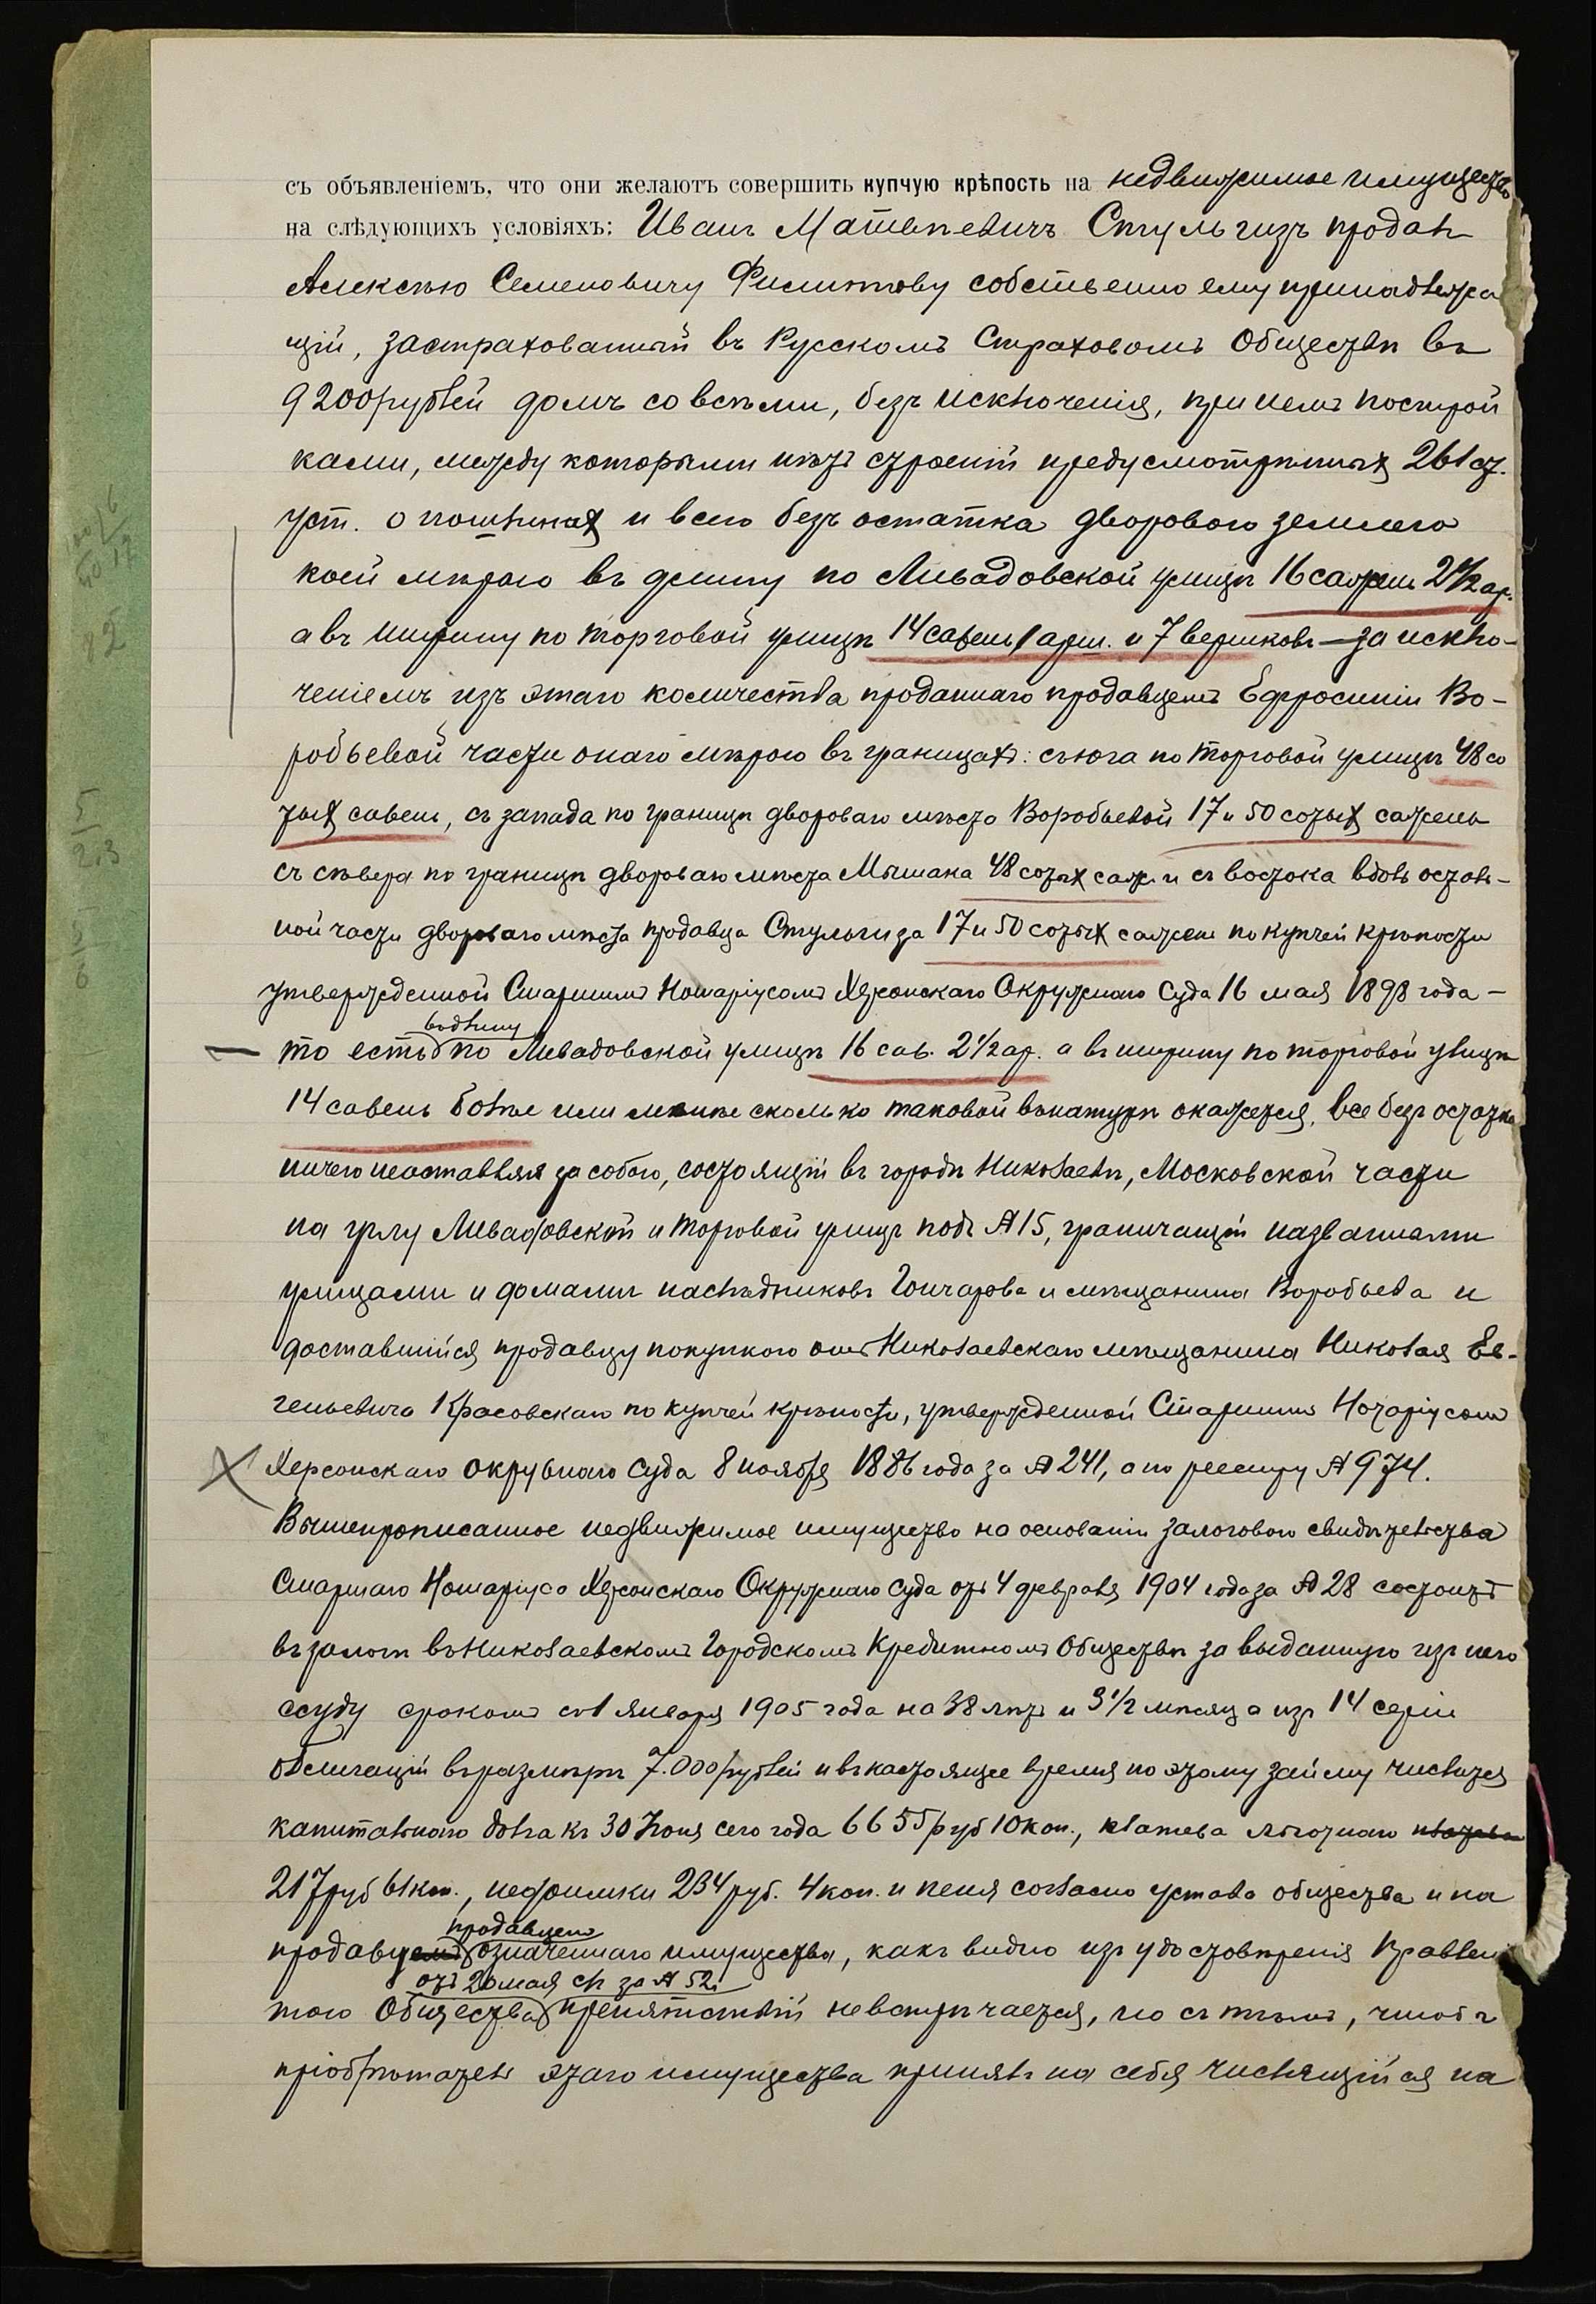 съ объявленіемъ, что они желаютъ совершить купчую крѣпость на недвижимое имущество
на слѣдующихъ условіяхъ: Иванъ Матвѣевичъ Стульгизъ продалъ
Алексѣю Семеновичу Филиппову собственно ему принадлежа
щій, застрахованный въ Русскомъ Страховомъ Обществѣ въ
9200 рублей домъ со всѣми, безъ исключенія, при немъ построй
ками, между которыми нѣтъ строеній предусмотрѣнныхъ 261 ст.
уст. о пошлинахъ и всего безъ остатка двороваго земли
коей мѣрою въ длину по Ливадовской улицѣ 16 сажень 2 1/2 ар.
а въ ширину по торговой улицѣ 14 сажень 1 арш. и 7 вершковъ – за исклю-
ченіемъ изъ этаго количества проданнаго продавцемъ Ефросиніи Во-
робьевой части онаго мѣрою въ границахъ: съ юга по торговой улицѣ 48 со
тыхъ сажень, съ запада по границѣ двороваго мѣста Воробьевой 17 и 50 сотыхъ сажень
съ сѣвера по границѣ двороваго мѣста Мышака 48 сотыхъ саж. и съ востока вдоль остав-
ной части двороваго мѣста продавца Стульгиза 17 и 50 сотыхъ сажень по купчей крѣпости
утвержденной Старшимъ Нотаріусомъ Херсонскаго Окружнаго Суда 16 мая 1898 года –
въ длину
– то есть по Ливадовской улицѣ 16 саж. 2 1/2 ар. а въ ширину по торговой улицѣ
14 сажень болѣе или менѣе сколько таковой въ натурѣ окажется, все безъ остатка
ничего неоставляя за собою, состоящій въ городѣ Николаевѣ, Московской части
на углу Ливадовской и торговой улицъ подъ № 15, граничащій названными
улицами и домами наслѣдниковъ Гончарова и мѣщанина Воробьева и
доставшійся продавцу покупкою отъ Николаевскаго мѣщанина Николая Ев-
геньевича Красовскаго по купчей крѣпости, утвержденной Старшимъ Нотаріусомъ
Херсонскаго окружнаго Суда 8 ноября 1886 года за № 241, а по реестру № 974.
Вышепрописанное недвижимое имущество на основаніи залоговаго свидѣтельства
Старшаго Нотаріуса Херсонскаго Окружнаго Суда отъ 4 февраля 1904 года за № 28 состоитъ
въ залогѣ въ Николаевскомъ Городскомъ Кредитномъ Обществѣ за выданную изъ него
ссуду срокомъ съ 1 января 1905 года на 38 лѣтъ и 3 1/2 мѣсяца изъ 14 серіи
облигацій въ размѣрѣ 7.000 рублей и въ настоящее время по этому займу числится
капитальнаго долга къ 30 Іюня сего года 6655 руб 10 коп., платежа льготнаго платежа
217 руб 61 коп., недоимки 234 руб. 4 коп. и пеня согласно устава общества и на
продавцемъ
продавцемъ означеннаго имущества, какъ видно изъ удостовѣренія Правленія
отъ 20 мая с/г за № 521
того Общества препятствій не встрѣчается, но съ тѣмъ, чтобы
пріобрѣтатель этаго имущества принялъ на себя числящійся на